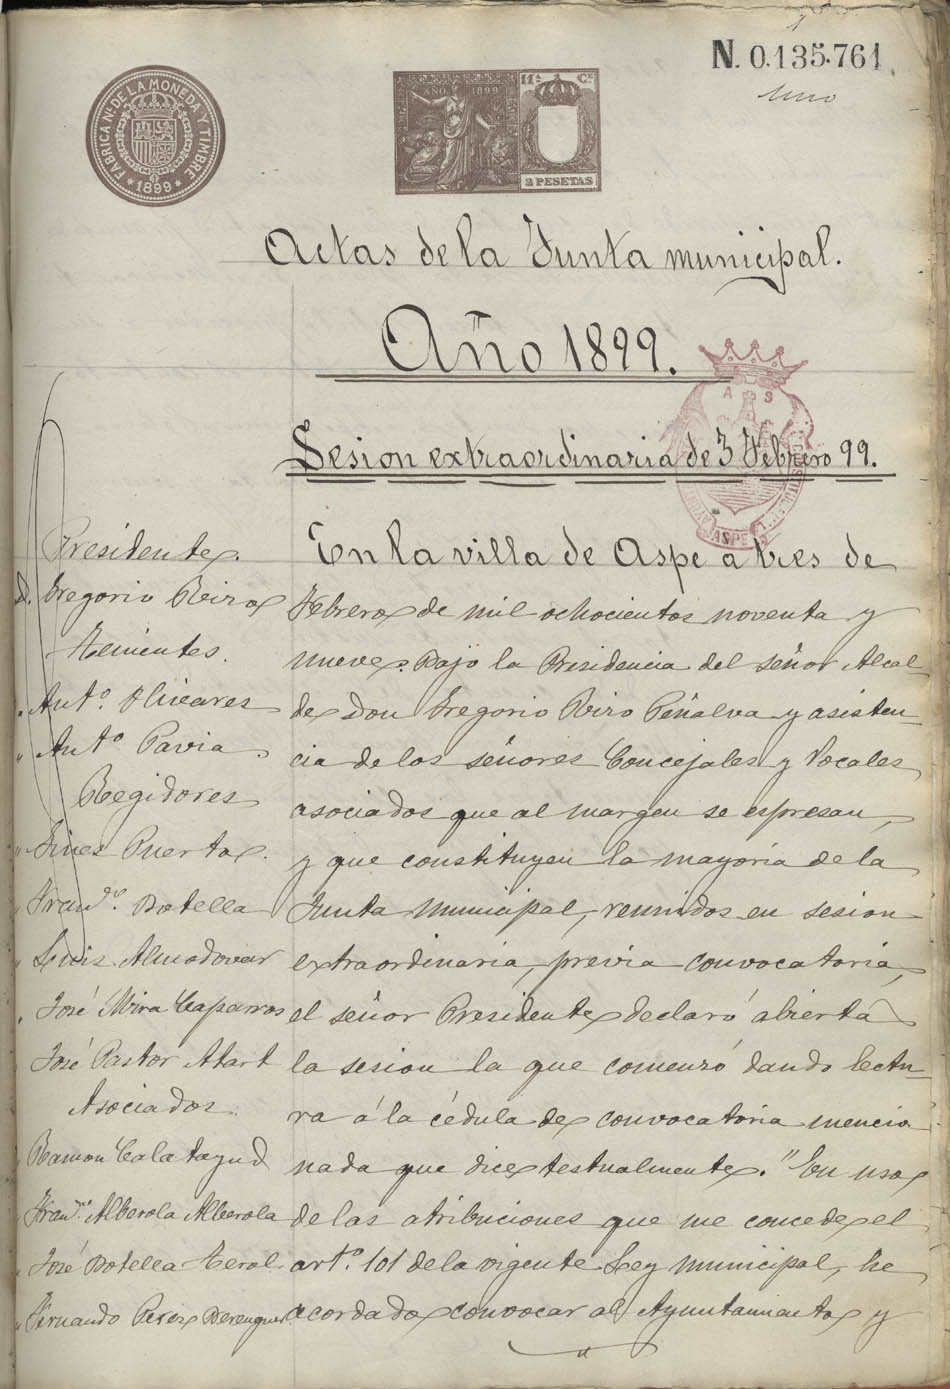 N. 0.135.761
uno
FÁBRICA NL. DE LA MONEDA Y TIMBRE
* 1899 *
AÑO 1899
11ª Cª
2 PESETAS
Actas de la Junta municipal.
Año 1899.
A S
ASPE
Sesion extraordinaria de 3 Febrero 99.
Presidente.
D. Gregorio Rizo
Tenientes.
" Antº. Olivares
" Antº Pavia
Regidores
" Gines Puerta
" Franco. Botella
" Luis Almodovar
" José Mira Caparros
José Pastor Atart
Asociados.
Ramon Calatayud
" Franco. Alberola Alberola
" José Botella Terol
" Fernando Perez Berenguer
En la villa de Aspe a tres de
Febrero de mil ochocientos noventa y
nueve. Bajo la Presidencia del señor Alcal-
de Don Gregorio Rizo Peñalva y asisten-
cia de los señores Concejales y Vocales
asociados que al margen se espresan,
y que constituyen la mayoría de la
Junta Municipal, reunidos en sesion
extraordinaria, previa convocatoria,
el señor Presidente declaró abierta
la sesion la que comenzó dando lectu-
ra á la cédula de convocatoria mencio-
nada que dice testualmente. "En uso
de las atribuciones que me concede el
artº. 101 de la vigente Ley Municipal, he
acordado convocar al Ayuntamiento y